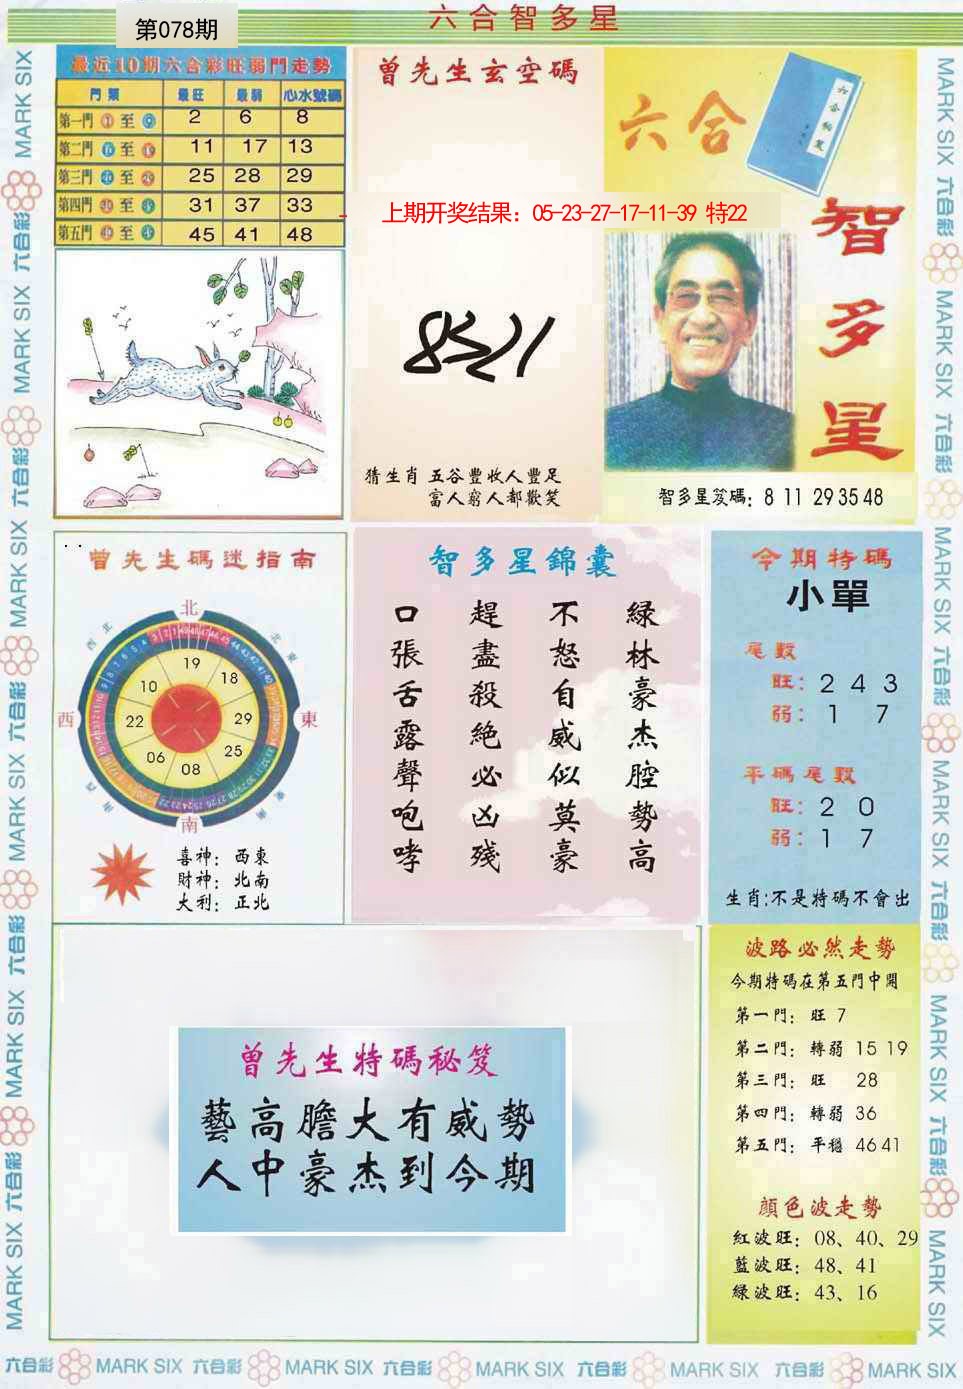 六合智多星
第078期
最近10期六合彩旺弱門走勢
門類 最旺 最弱 心水號碼
第一門 至 2 6 8
第二門 至 11 17 13
第三門 至 25 28 29
第四門 至 31 37 33
第五門 至 45 41 48
曾先生玄空碼
上期开奖结果：05-23-27-17-11-39 特22
猜生肖 五谷豐收人豐足
富人窮人都歡笑
六合
智多星
智多星笈碼：8 11 29 35 48
曾先生碼迷指南
北
西北
北東
西
東
南
19
18
29
25
08
06
22
10
喜神：西東
財神：北南
大利：正北
智多星錦囊
綠林豪杰腔勢高
不怒自威似莫豪
趕盡殺絕必凶殘
口張舌露聲咆哮
今期特碼
小單
尾數
旺：2 4 3
弱：1 7
平碼尾數
旺：2 0
弱：1 7
生肖:不是特碼不會出
曾先生特碼秘笈
藝高膽大有威勢
人中豪杰到今期
波路必然走勢
今期特碼在第五門中開
第一門：旺 7
第二門：轉弱 15 19
第三門：旺 28
第四門：轉弱 36
第五門：平穩 46 41
顔色波走勢
紅波旺：08、40、29
藍波旺：48、41
綠波旺：43、16
MARK SIX 六合彩 MARK SIX 六合彩 MARK SIX 六合彩 MARK SIX 六合彩 MARK SIX 六合彩 MARK SIX
MARK SIX 六合彩 MARK SIX 六合彩 MARK SIX 六合彩 MARK SIX 六合彩 MARK SIX 六合彩 MARK SIX
六合彩 MARK SIX 六合彩 MARK SIX 六合彩 MARK SIX 六合彩 MARK SIX 六合彩 MARK SIX